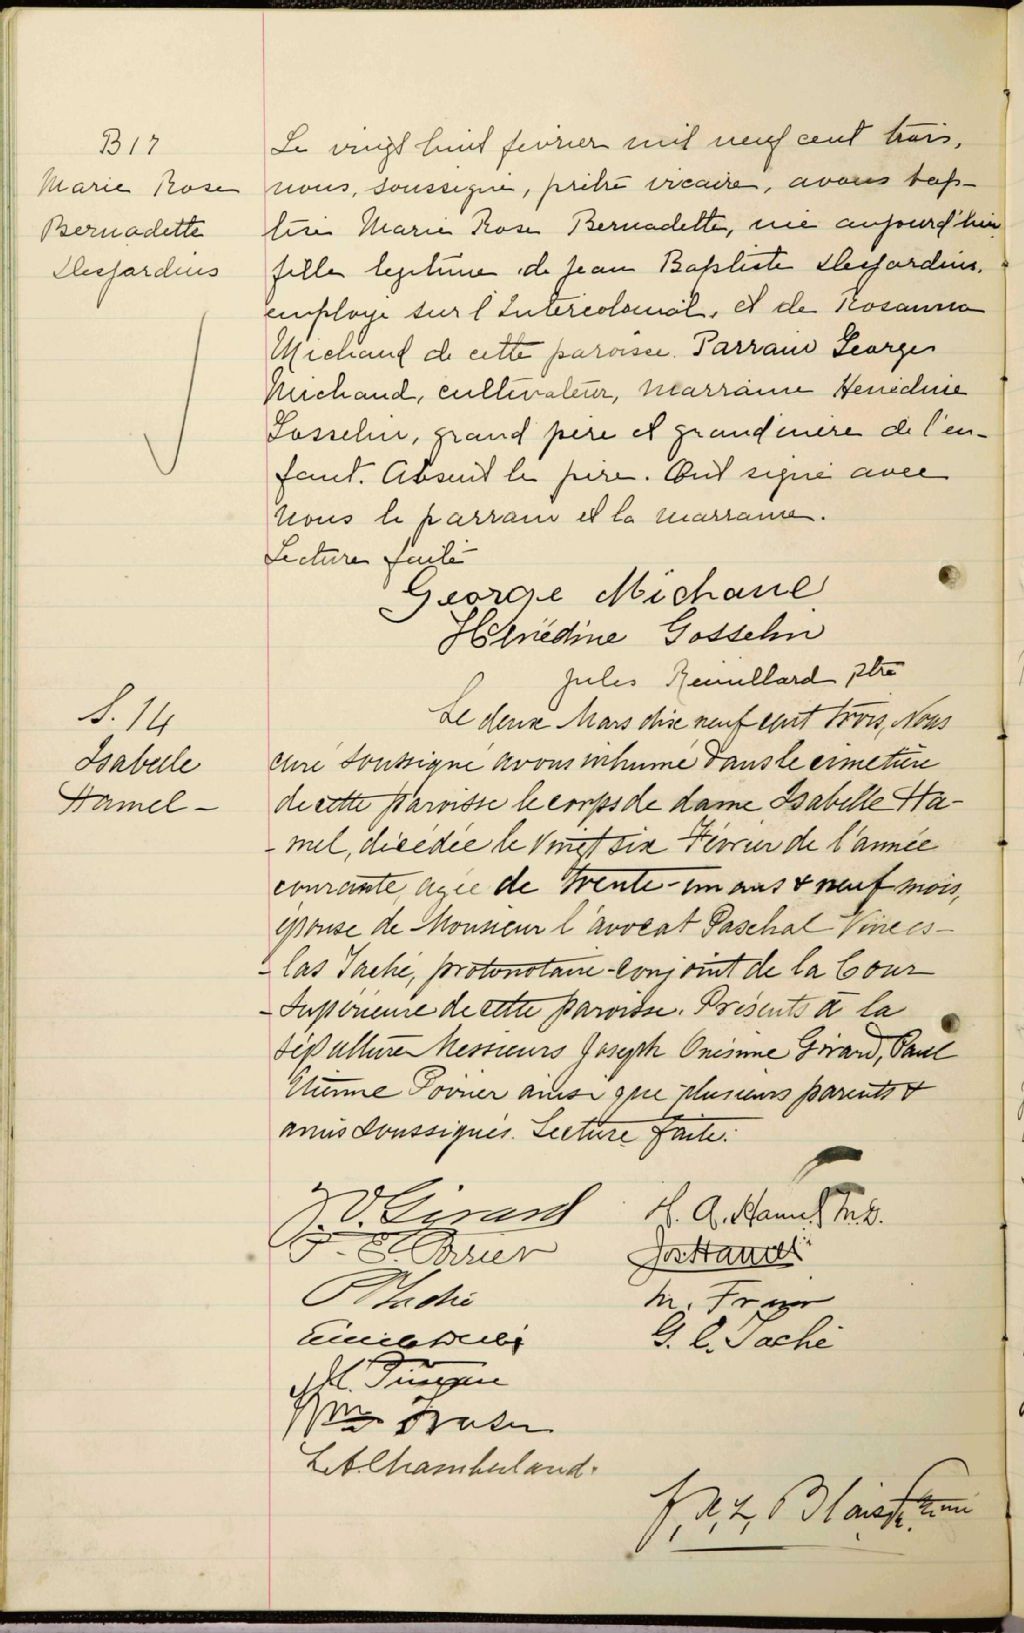 B 17
Marie Rose
Bernadette
Desjardins
Le vingt huit fevrier mil neuf cent trois,
nous, soussigné, prêtre vicaire, avons bap-
tisé Marie Rose Bernadette, née aujourd'hui,
fille legitime de Jean Baptiste Desjardins,
employé sur l'Intercolonial, et de Rosanna
Michaud de cette paroisse. Parrain Georges
Michaud, cultivateur, marraine Henédine
Gosselin, grand père et grand'mère de l'en-
fant. Absent le père. Ont signé avec
nous le parrain et la marraine.
Lecture faite
George Michaud
Hénédine Gosselin
Jules Remillard ptre
S. 14
Isabelle
Hamel -
Le deux Mars dix neuf cent trois, Nous
curé soussigné avons inhumé dans le cimetière
de cette paroisse le corps de dame Isabelle Ha-
- mel, décédée le vingt six Février de l'année
courante, agée de trente-un ans & neuf mois,
épouse de Monsieur l'avocat Paschal Vinces-
- las Taché, protonotaire-conjoint de la Cour
- Supérieure de cette paroisse. Présents à la
sépulture Messieurs Joseph Onésime Girard, Paul
Etienne Poirier ainsi que plusieurs parents &
amis soussignés. Lecture faite.
Girard
H. A. Hamel M.D.
P. E. Poirier
Jos Hamel
Taché
M.
G. C. Taché
Wm Fraser
L. A. Chamberland.
Blais Ptr. Curé